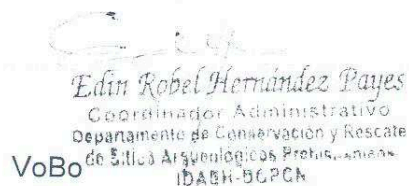 Edin Robel Hernández Payes
Coordinador Administrativo
Departamento de Conservación y Rescate
VoBo de Sitios Arqueológicos
IDAEH-DGPCN